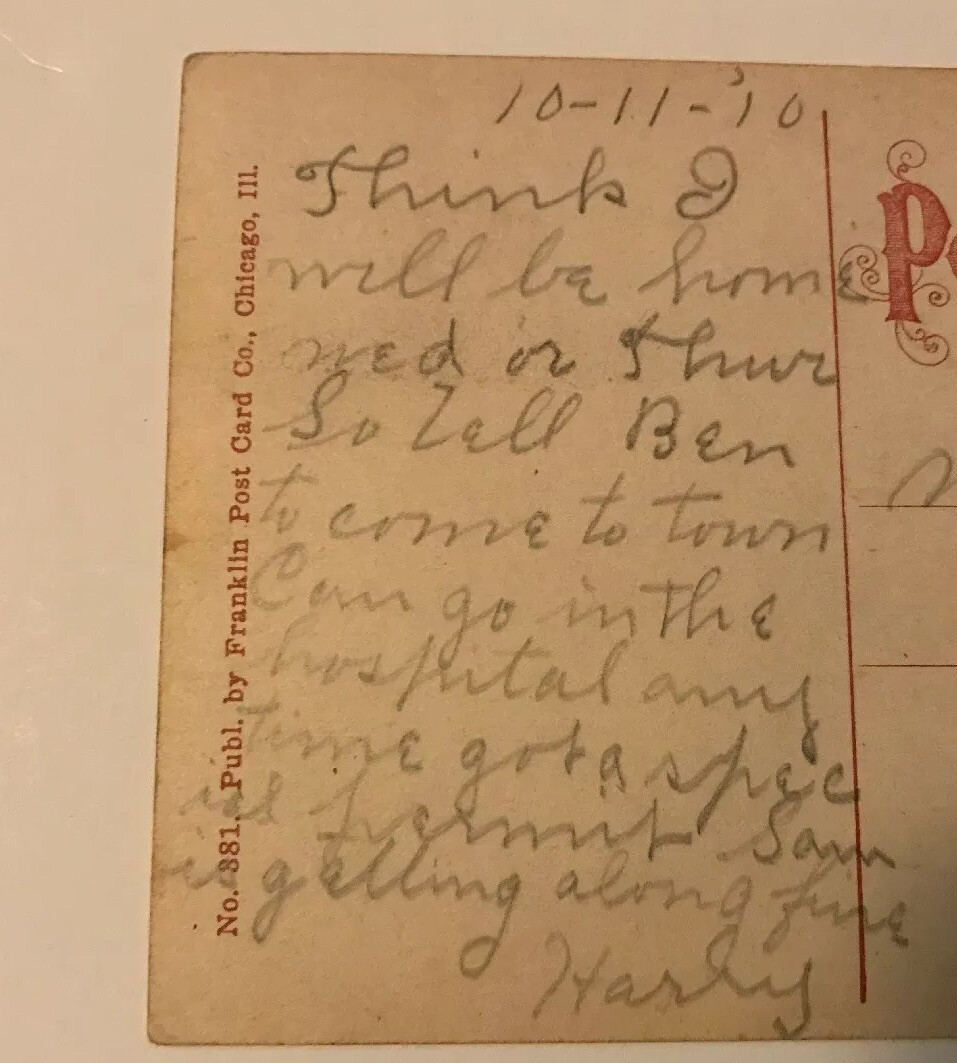 10-11-'10
Think I
will be home
wed or Thur
So Tell Ben
to come to town
Can go in the
hospital any
time got a spec
ial permit Sam
is getting along fine
Harry
No. 381. Publ. by Franklin Post Card Co., Chicago, Ill.